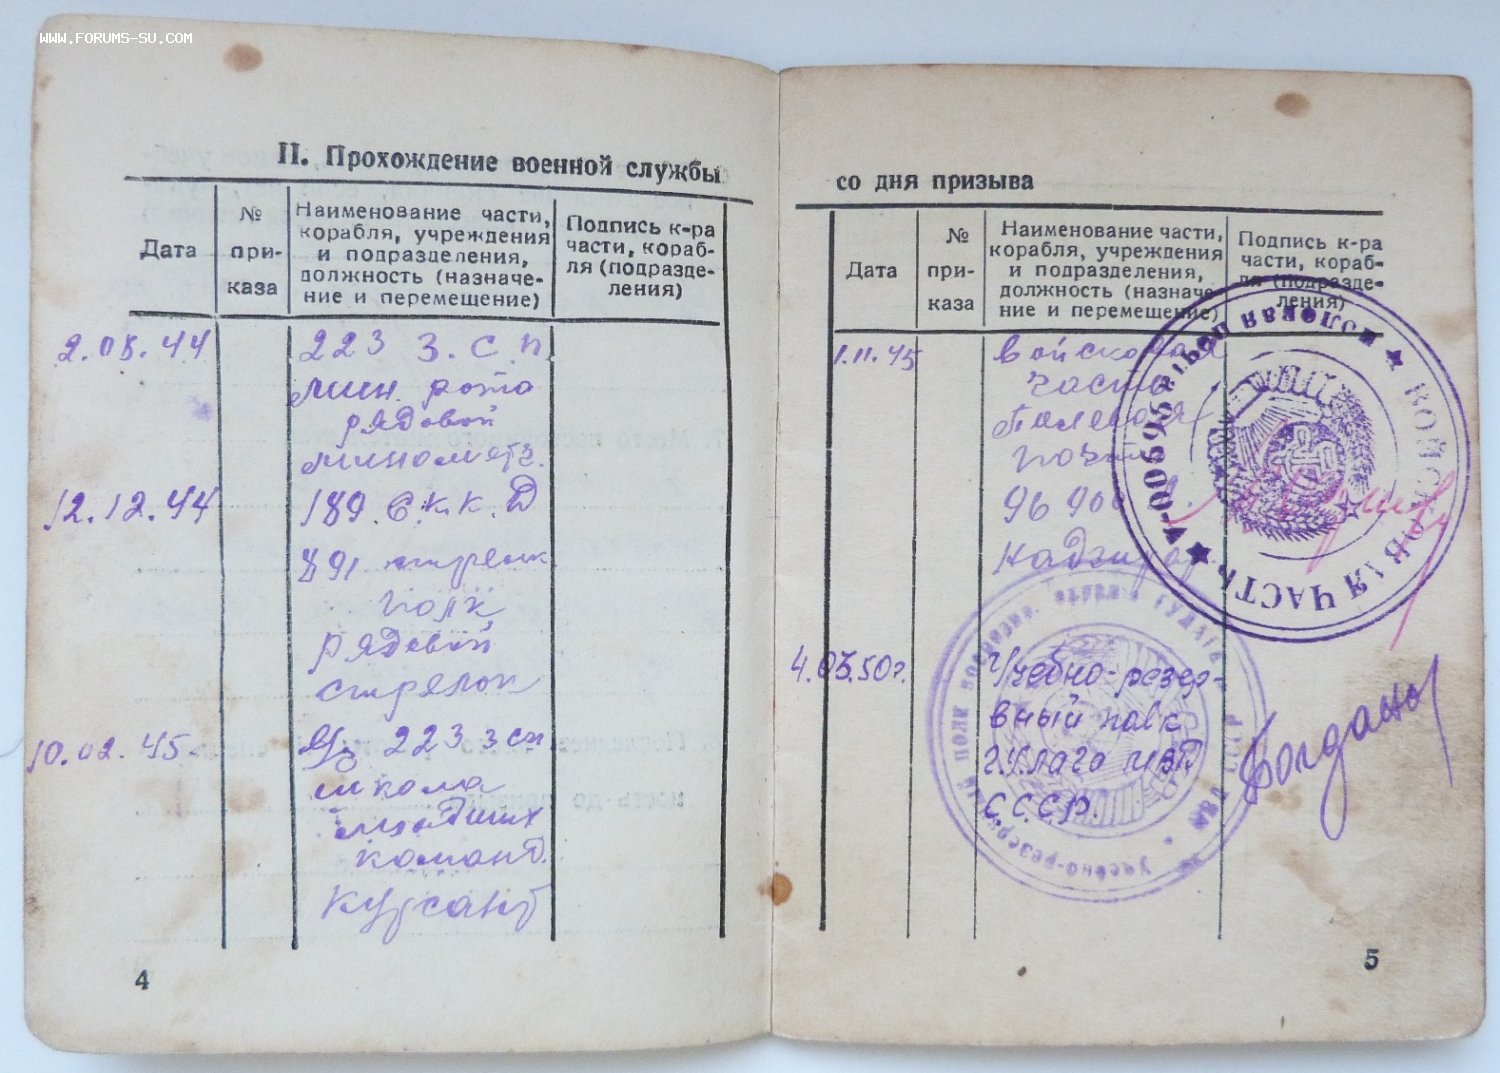 WWW.FORUMS-SU.COM
II. Прохождение военной службы
Дата
№
при-
каза
Наименование части,
корабля, учреждения
и подразделения,
должность (назначе-
ние и перемещение)
Подпись к-ра
части, кораб-
ля (подразде-
ления)
223 З.С.П.
мин. рота
рядовой
12.12.44
189 С.К.К.Д
891 стрелк
полк
рядовой
стрелок
10.02.45
223 зсп
школа
младших
команд.
курсант
4
со дня призыва
Дата
№
при-
каза
Наименование части,
корабля, учреждения
и подразделения,
должность (назначе-
ние и перемещение)
Подпись к-ра
части, кораб-
ля (подразде-
ления)
1.11.45
Войсковая
часть
Полевая
почта
ВОЙСКОВАЯ ЧАСТЬ
Учебно-резер-
вный полк
С.С.С.Р.
5